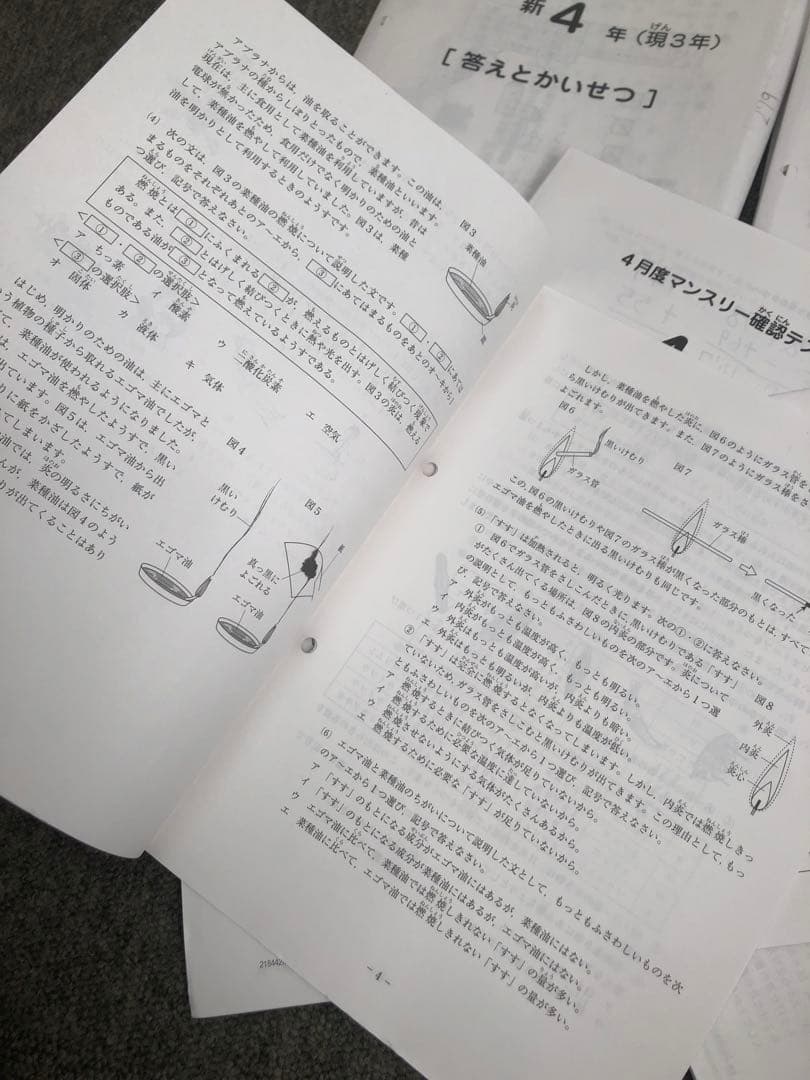 アブラナからは、油を取ることができます。この油は、
アブラナの種からしぼりとったもので、菜種油といいます。
現在は、主に食用として菜種油を利用していますが、昔は
電球が無かったため、食用だけでなく明かりのための油と
して、菜種油を燃やして利用していました。図3は、菜種
油を明かりとして利用するときのようすです。
図3
菜種油
(4) 次の文は、図3の菜種油の燃焼について説明した文です。①・②にあては
まるものをそれぞれあとのア〜エから、③にあてはまるものをあとのオ〜キから1
つ選び、記号で答えなさい。
燃焼とは①にふくまれる②が、燃えるものとはげしく結びつく現象で
ある。また、②とはげしく結びつくときに熱や光を出す。図3の炎は、燃える
ものである油が③となって燃えているようすである。
<①・②の選択肢>
ア ちっ素 イ 酸素 ウ 二酸化炭素 エ 空気
<③の選択肢>
オ 固体 カ 液体 キ 気体
はじめ、明かりのための油は、主にエゴマと
う植物の種子から取れるエゴマ油でしたが、
て、菜種油が使われるようになりました。
エゴマ油を燃やしたようすで、黒い
出ています。図5は、エゴマ油から出
りに紙をかざしたようすで、紙が
てしまいます。
油では、炎の明るさにちがい
んが、菜種油は図4のよう
りが出てくることはあり
図4
黒い
けむり
エゴマ油
図5
紙
真っ黒に
よごれる
エゴマ油
しかし、菜種油を燃やした炎に、図6のようにガラス管を
ら黒いけむりが出てきます。また、図7のようにガラス棒をさ
よごれます。
図6
黒いけむり
ガラス管
図7
ガラス棒
黒くなった
この、図6の黒いけむりや図7のガラス棒が黒くなった部分のもとは、すべて
エゴマ油を燃やしたときに出る黒いけむりも同じです。
(5) 「すす」は加熱されると、明るく光ります。次の①・②に答えなさい。
① 図6でガラス管をさしこんだときに、黒いけむりである「すす」
がたくさん出てくる場所は、図8の内炎の部分です。炎について
の説明として、もっともふさわしいものを次のア〜エから1つ選
び、記号で答えなさい。
ア 外炎がもっとも温度が高く、もっとも明るい。
イ 内炎がもっとも温度が高く、もっとも明るい。
ウ 外炎はもっとも温度が高いが、内炎よりも暗い。
エ 外炎はもっとも明るいが、内炎よりも温度が低い。
図8
外炎
内炎
炎心
② 「すす」は完全に燃焼するとなくなってしまいます。しかし、内炎では燃焼しきっ
ていないため、ガラス管をさしこむと黒いけむりが出てきます。この理由として、もっ
ともふさわしいものを次のア〜エから1つ選び、記号で答えなさい。
ア 燃焼するときに結びつく気体が足りていないから。
イ 燃焼するために必要な温度に達していないから。
ウ 燃焼させないようにする気体がたくさんあるから。
エ 燃焼するために必要な「すす」が足りていないから。
(6) エゴマ油と菜種油のちがいについて説明した文として、もっともふさわしいものを次
のア〜エから1つ選び、記号で答えなさい。
ア 「すす」のもとになる成分がエゴマ油にはあるが、菜種油にはない。
イ 「すす」のもとになる成分が菜種油にはあるが、エゴマ油にはない。
ウ エゴマ油に比べて、菜種油では燃焼しきれない「すす」の量が多い。
エ 菜種油に比べて、エゴマ油では燃焼しきれない「すす」の量が多い。
-4-
新4年(現3年)
[答えとかいせつ]
4月度マンスリー確認テ